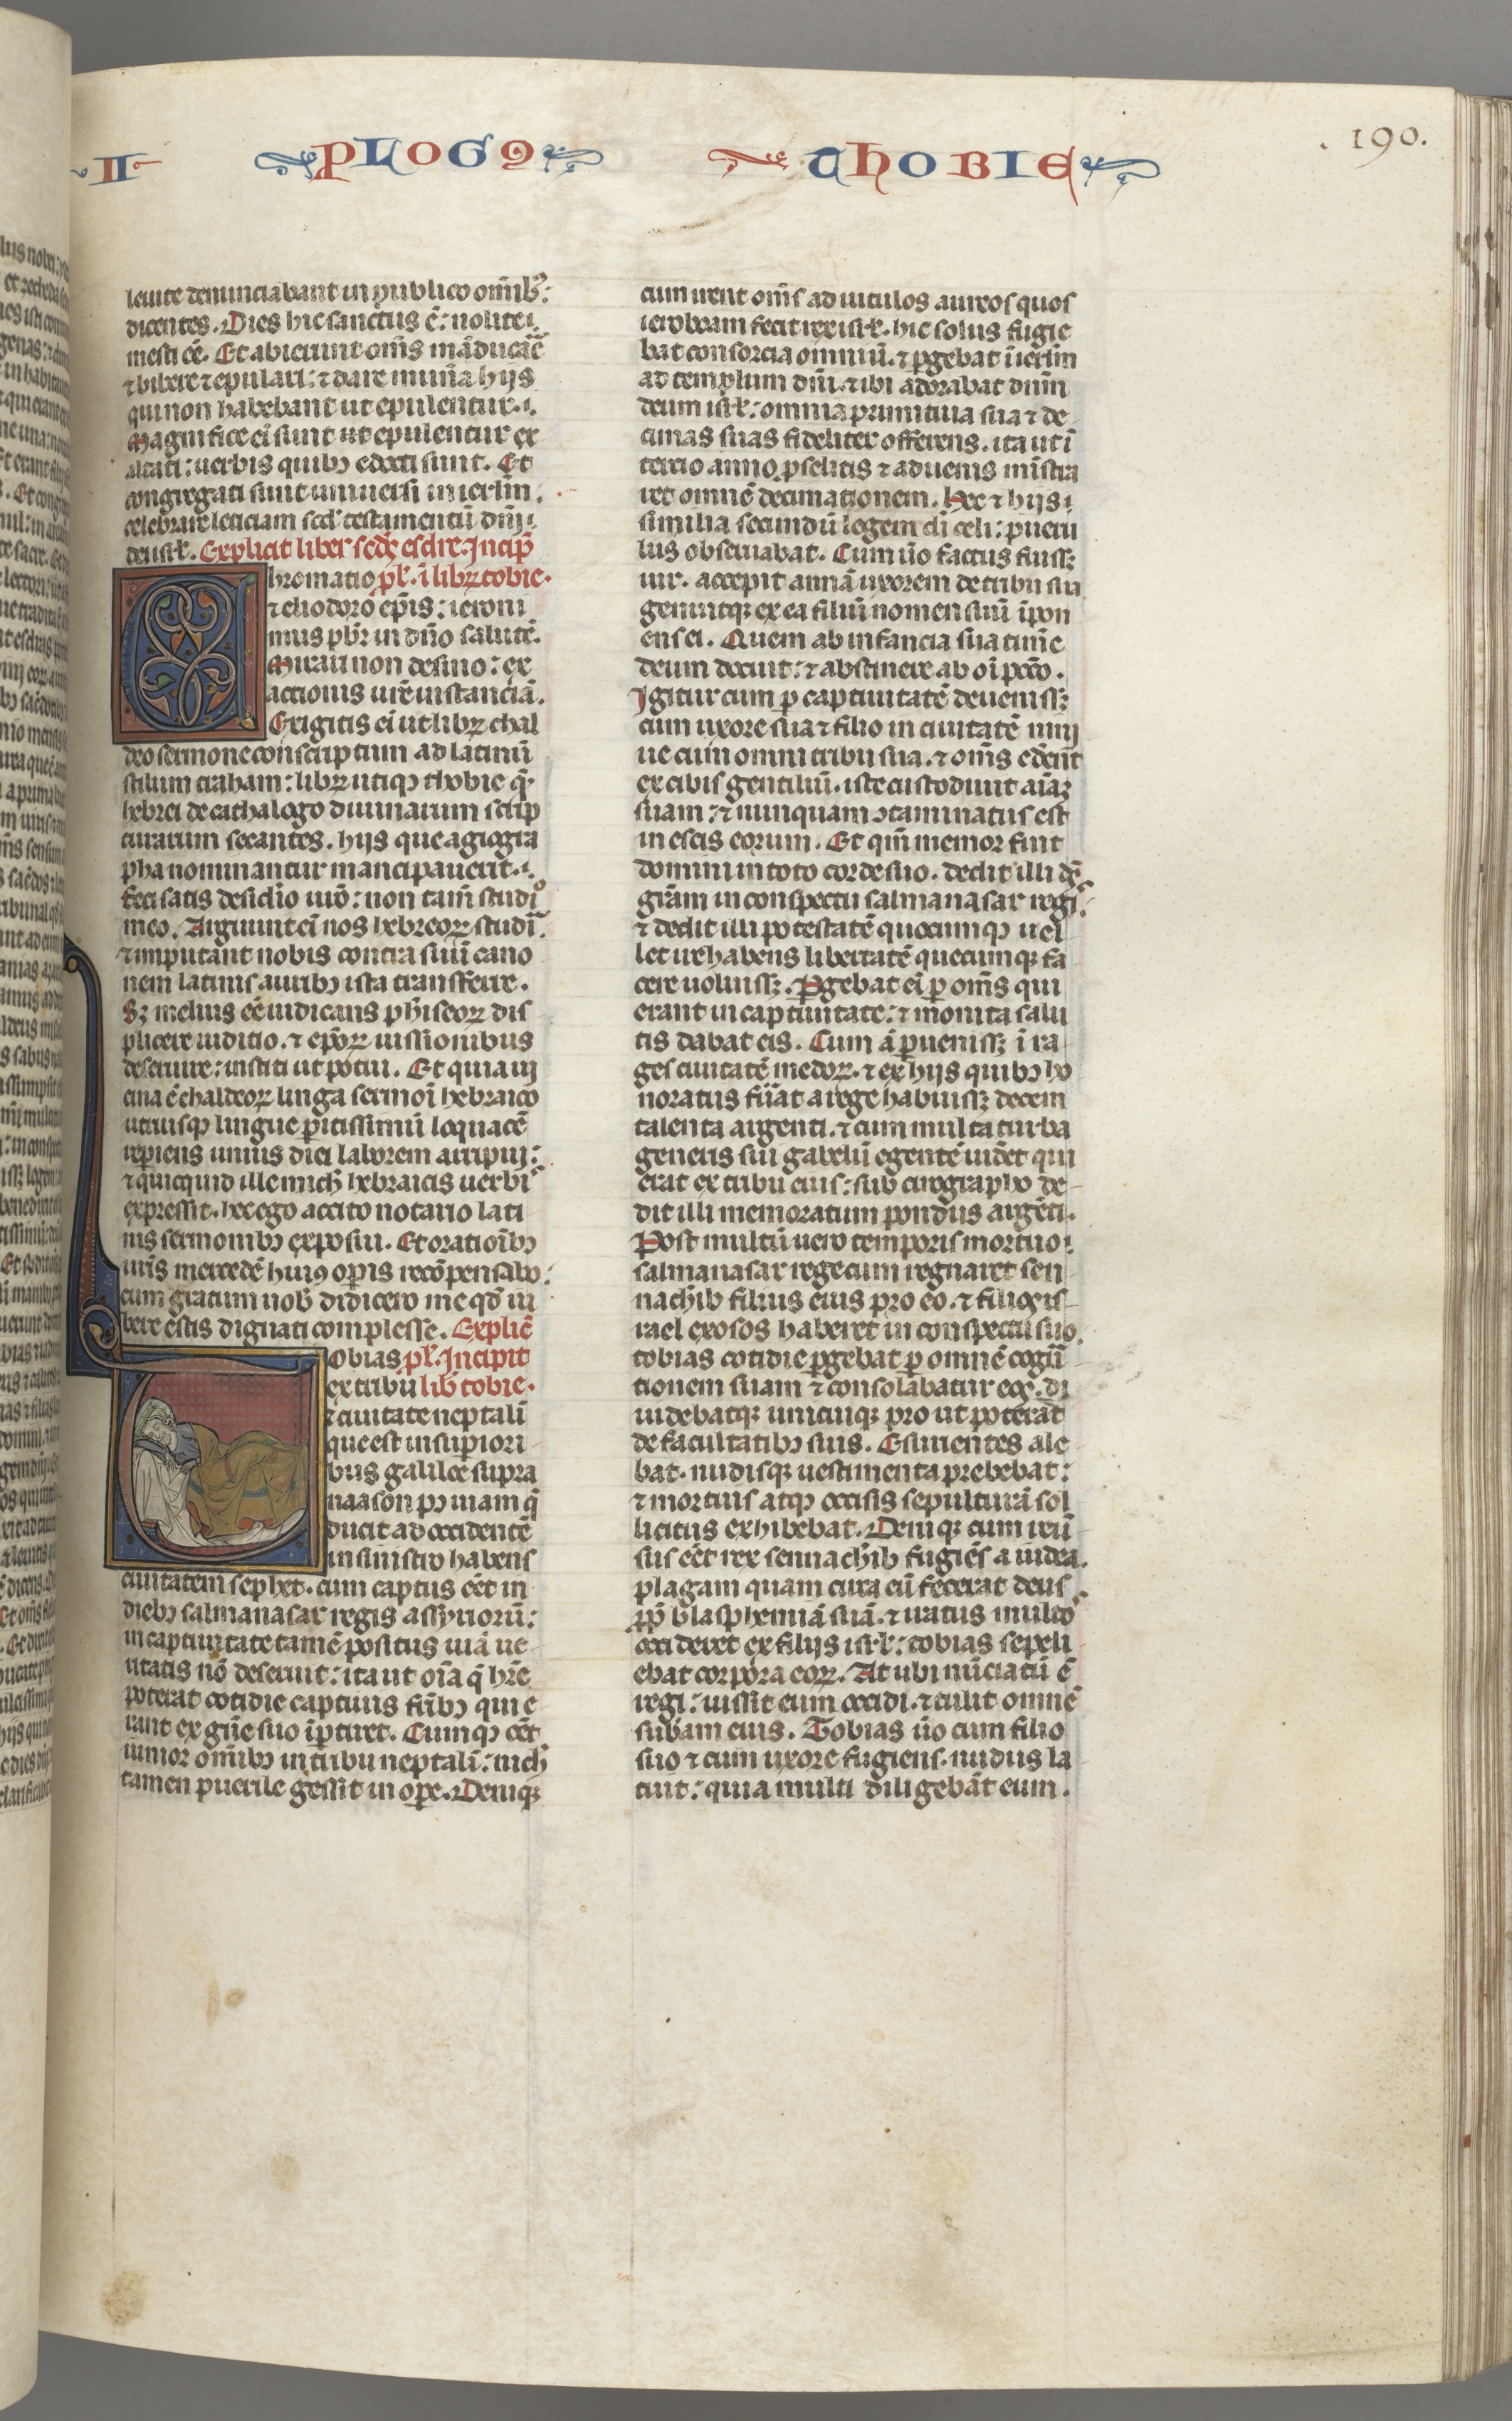 II PLOG9 THOBIE .190.
leuite denunciabant in publico om̅ib9:
dicentes. Dies hic sanctus e̅: nolite
mesti ee̅. Et abierunt om̅s ma̅ducar̅e
⁊ bibere ⁊ epulari: ⁊ dare mun̅a hijs
qui non habebant ut epulentur.
Magnifice ei̅ sunt ut epulentur ex
altati: uerbis quibꝫ edocti sunt. Et
congregati sunt uniuersi in ierl̅m
celebrare leticiam scd̅ testamentu̅ dn̅i
dei isrl̅. Explicit liber scd̅s esdre. Incip̅
hromatio pl̅. i̅ libꝝ tobie.
⁊ eliodoro ep̅is: ieroni
mus pb̅r in dn̅o salute̅.
Mirari non desino: ex
actionis ur̅e instancia̅.
Exigitis ei̅ ut libꝝ chal
deo sermone conscriptum ad latinu̅
stilum traham: libꝝ utiqꝫ thobie q̅
hebrei de cathalogo diuinarum scrip
turarum secantes. hijs que agiogra
pha nominantur manciparuerit.
feci satis desid̅io ur̅o: non tam̅ studi̊
meo. Arguunt ei̅ nos hebreoꝝ studi̅
⁊ imputant nobis contra suu̅ cano
nem latinis auribꝫ ista transferre.
Sꝫ melius ee̅ iudicans ph̅iseoꝝ dis
plicere iuditio. ⁊ ep̅oꝝ iussionibus
deseruire: institi ut potui. Et quia ui
cina e̅ chaldeoꝝ linga sermoi̅ hebraico
utriusqꝫ lingue p̲itissimu̅ loquace̅
rep̲iens unius diei laborem arripui:
⁊ quicquid ille mich̅ hebraicis uerbis
expressit. hec ego accito notario lati
nis sermonibꝫ exposui. Et oratioi̅bꝫ
ur̅is mercede̅ hui9 op̲is reco̅pensabo:
cum gratum nob̅ didicero me qd̅ iu
bere estis dignati complesse. Explic̅
obias pl̅. Incipit
ex tribu lib̅ tobie.
⁊ ciuitate neptali̅
que est in sup̲iori
bus galilee supra
naason po̅ uiam q̅
ducit ad occidente̅
in sinistro habens
ciuitatem sephet. cum captus ee̅t in
diebꝫ salmanasar regis assyrioru̅:
in captiuitate tame̅ positus uia̅ ue
ritatis no̅ deseruit: ita ut oi̅a q̅ hr̅e
poterat cotidie captiuis fr̅ibꝫ qui e
rant ex gn̅e suo i̅p̲tiret. Cumqꝫ ee̅t
iunior om̅ibꝫ in tribu neptali̅: nich̅
tamen puerile gessit in op̲e. Deniqꝫ
cum irent om̅s ad uitulos aureos quos
ieroboam fecit rex isrl̅. hic solus fugie
bat consorcia omniu̅. ⁊ p̲gebat i̅ ierl̅m
ad templum dn̅i. ⁊ ibi adorabat dn̅m
deum isrl̅: omnia primitiua sua ⁊ de
cimas suas fideliter offerens. ita ut i̅
tercio anno p̲selitis ⁊ aduenis mi̅stra
ret omne̅ decimationem. Hec ⁊ hijs
similia secundu̅ legem di̅ celi: pueru
lus obseruabat. Cum u̅o factus fuissꝫ
uir. accepit anna̅ uxorem de tribu sua
genuitqꝫ ex ea filiu̅ nomen suu̅ i̅pon
ens ei. Quem ab infancia sua tim̅e
deum docuit: ⁊ abstinere ab oi̅ pcc̅o.
Igitur cum p̲ captiuitate̅ deuenissꝫ
cum uxore sua ⁊ filio in ciuitate̅ nini
ue cum omni tribu sua. ⁊ om̅s edere̅t
ex cibis gentiliu̅. iste custodiuit ai̅aꝫ
suam: ⁊ nunquam ꝯtaminatus est
in escis eorum. Et qm̅ memor fuit
domini in toto corde suo. dedit illi ds̅
gr̅am in conspectu salmanasar regis
⁊ dedit illi potestate̅ quocumqꝫ uel
let ire habens libertate̅ quecumqꝫ fa
cere uoluissꝫ. P̲gebat ei̅ p̲ om̅s qui
erant in captiuitate: ⁊ monita salu
tis dabat eis. Cum a̅ p̲uenissꝫ i̅ ra
ges ciuitate̅ medoꝝ. ⁊ ex hijs quibꝫ ho
noratus fu̅at a rege habuissꝫ decem
talenta argenti. ⁊ cum multa turba
generis sui gabelu̅ egente̅ uid̅et qui
erat ex tribu eius: sub cirographo de
dit illi memoratum pondus arge̅ti.
Post multu̅ uero temporis mortuo
salmanasar rege cum regnaret sen
nach̅ib filius eius pro eo. ⁊ filios is
rael exosos haberet in conspectu suo
tobias cotidie p̲gebat p̲ omne̅ cogn̅
tionem suam ⁊ consolabatur eos. di
uidebatqꝫ unicuiqꝫ pro ut poterat
de facultatibꝫ suis. Esurientes ale
bat. nudisqꝫ uestimenta prebebat:
⁊ mortuis atqꝫ occisis sepultura̅ sol
licitus exhibebat. Deniqꝫ cum reu̅
sus ee̅t rex sennach̅ib fugie̅s a iudea
plagam quam circa eu̅ fecerat deus
pp̅ blasphemia̅ sua̅. ⁊ iratus multos
occideret ex filijs isrl̅: tobias sepeli
ebat corpora eoꝝ. At ubi nu̅ciatu̅ e̅
regi: iussit eum occidi. ⁊ tulit omne̅
sub̅am eius. Tobias u̅o cum filio
suo ⁊ cum uxore fugiens. nudus la
tuit: quia multi diligeba̅t eum.